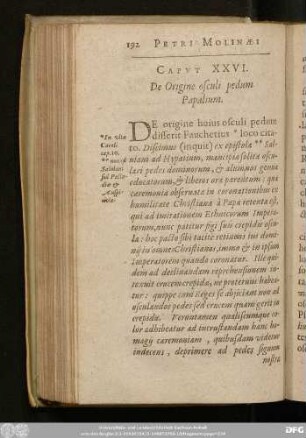 192 PETRI MOLINÆI
CAPVT XXVI.
De Origine osculi pedum
Papalium.
DE origine huius osculi pedum
disserit Fauchetius * loco cita-
to. Discimus (inquit) ex epistula ** Sal-
uiani ad Hypatium, mancipia solita oscu-
lari pedes dominorum, & alumnas genua
educatorum, & liberos ora parentum: quæ
ceremonia obseruata in coronationibus ex
humilitate Christiana à Papa retenta est,
qui ad imitationem Ethnicorum Impera-
torum, nunc patitur pedes suis crepidis oscu-
la: hoc pacto sibi tacitè
nes Christianos, immo & in ipsum
Imperatorem quando coronatur. Ille qui-
dem ad declinandam reprehensionem in-
texuit crucem crepidæ, ne proteruus habea-
tur: quippe cum Reges se abjiciant non ad
osculandos pedes sed crucem quam gerit in
crepida. Veruntamen qualiscumque co-
lor adhibeatur ad incrustandam hanc ho-
magij cæremoniam, quibusdam videtur
indecens, deprimere ad pedes signum
nostra